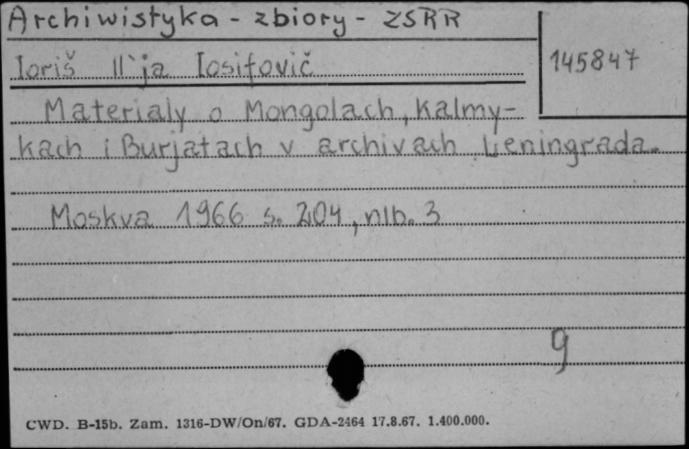 Archiwistyka - zbiory - ZSRR
145847
Ioriš Il'ja Iosifovič
Materialy o Mongolach, Kalmy-
kach i Burjatach v archivach Leningrada.
Moskva 1966 s. 204, nlb. 3
9
CWD. B-15b. Zam. 1316-DW/On/67. GDA-2464 17.8.67. 1.400.000.